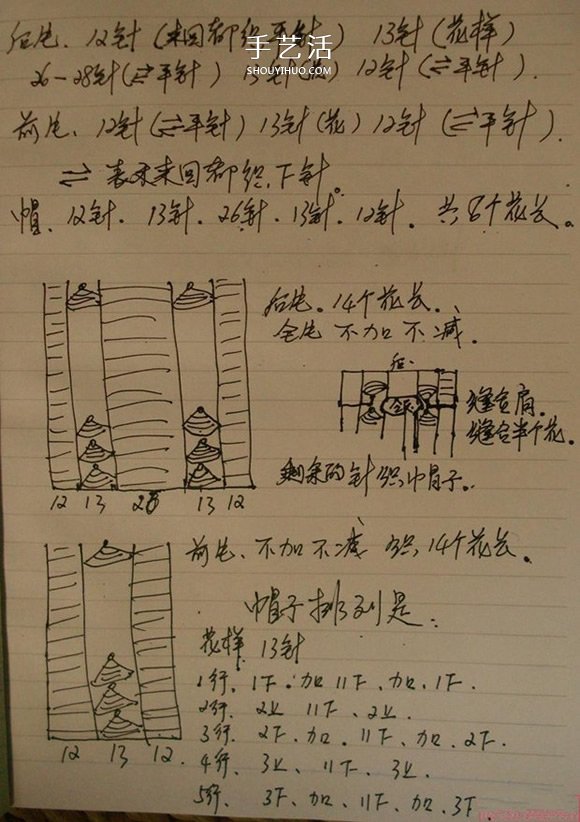 后片、12针(来回都织平针) 13针(花样)
手艺活
SHOUYIHUO.COM
26-28针(⇌平针) 13针(花) 12针(⇌平针).
前片、12针(⇌平针) 13针(花) 12针(⇌平针).
⇌ 表示来回都织下针。
帽、12针、13针、26针、13针、12针。共8个花长。
后片。14个花长、
全片 不加不减.
后.
缝合肩.
缝合半个花.
剩余的针织帽子.
12 13 28 13 12
前片、不加不减 织14个花长。
帽子排列是:
花样 13针
1行、1下、加 11下、加、1下.
2行、2上 11下、2上.
3行、2下、加. 11下、加、2下.
4行、3上、11下、3上.
5行、3下、加、11下、加、3下.
12 13 12